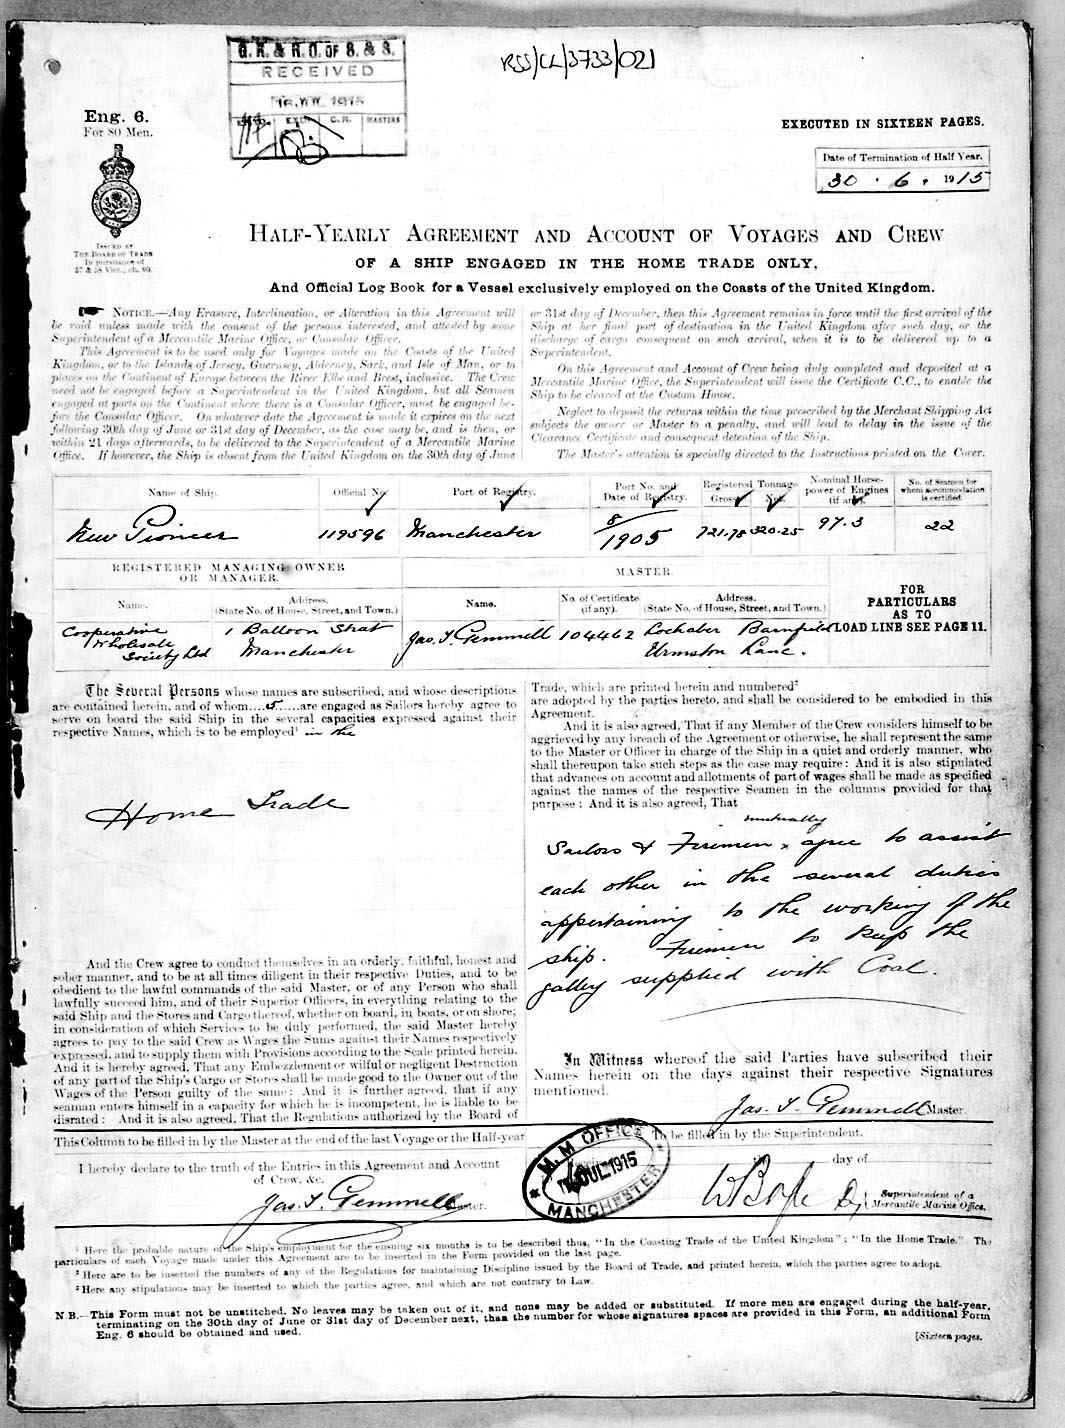 RSS/CL/3733/021
G.R. & R.O. OF S. & S.
RECEIVED
1915
C.R. MASTERS
Eng. 6.
For 80 Men.
EXECUTED IN SIXTEEN PAGES.
Date of Termination of Half Year.
30 . 6 . 1915
ISSUED BY
THE BOARD OF TRADE
In pursuance of
57 & 58 Vict., ch. 60.
HALF-YEARLY AGREEMENT AND ACCOUNT OF VOYAGES AND CREW
OF A SHIP ENGAGED IN THE HOME TRADE ONLY,
And Official Log Book for a Vessel exclusively employed on the Coasts of the United Kingdom.
NOTICE.—Any Erasure, Interlineation, or Alteration in this Agreement will
be void unless made with the consent of the persons interested, and attested by some
Superintendent of a Mercantile Marine Office, or Consular Officer.
This Agreement is to be used only for Voyages made on the Coasts of the United
Kingdom, or to the Islands of Jersey, Guernsey, Alderney, Sark, and Isle of Man, or to
places on the Continent of Europe between the River Elbe and Brest, inclusive. The Crew
need not be engaged before a Superintendent in the United Kingdom, but all Seamen
engaged at ports on the Continent where there is a Consular Officer, must be engaged be-
fore the Consular Officer. On whatever date the Agreement is made it expires on the next
following 30th day of June or 31st day of December, as the case may be, and is then, or
within 21 days afterwards, to be delivered to the Superintendent of a Mercantile Marine
Office. If however, the Ship is absent from the United Kingdom on the 30th day of June
or 31st day of December, then this Agreement remains in force until the first arrival of the
Ship at her final port of destination in the United Kingdom after such day, or the
discharge of cargo consequent on such arrival, when it is to be delivered up to a
Superintendent.
On this Agreement and Account of Crew being duly completed and deposited at a
Mercantile Marine Office, the Superintendent will issue the Certificate C.C., to enable the
Ship to be cleared at the Custom House.
Neglect to deposit the returns within the time prescribed by the Merchant Shipping Act
subjects the owner or Master to a penalty, and will lead to delay in the issue of the
Clearance Certificate and consequent detention of the Ship.
The Master's attention is specially directed to the Instructions printed on the Cover.
Name of Ship. Official No. Port of Registry. Port No. and Date of Registry. Registered Tonnage Gross. Net. Nominal Horse-power of Engines (if any). No. of Seamen for whom accommodation is certified.
New Pioneer 119596 Manchester 8/1905 721.75 320.25 97.3 22
REGISTERED MANAGING OWNER
OR MANAGER.
MASTER.
Name. Address. (State No. of House, Street, and Town.) Name. No. of Certificate (if any). Address. (State No. of House, Street, and Town.)
FOR
PARTICULARS
AS TO
LOAD LINE SEE PAGE 11.
Cooperative 1 Balloon Street Jas. T. Gemmell 104462 Lochaber Barnfield
Wholesale
Society Ltd Manchester Urmston Lane.
The Several Persons whose names are subscribed, and whose descriptions
are contained herein, and of whom....5....are engaged as Sailors hereby agree to
serve on board the said Ship in the several capacities expressed against their
respective Names, which is to be employed¹ in the
Home Trade
And the Crew agree to conduct themselves in an orderly, faithful, honest and
sober manner, and to be at all times diligent in their respective Duties, and to be
obedient to the lawful commands of the said Master, or of any Person who shall
lawfully succeed him, and of their Superior Officers, in everything relating to the
said Ship and the Stores and Cargo thereof, whether on board, in boats, or on shore;
in consideration of which Services to be duly performed, the said Master hereby
agrees to pay to the said Crew as Wages the Sums against their Names respectively
expressed, and to supply them with Provisions according to the Scale printed herein.
And it is hereby agreed, That any Embezzlement or wilful or negligent Destruction
of any part of the Ship's Cargo or Stores shall be made good to the Owner out of the
Wages of the Person guilty of the same: And it is further agreed, that if any
seaman enters himself in a capacity for which he is incompetent, he is liable to be
disrated: And it is also agreed, That the Regulations authorized by the Board of
Trade, which are printed herein and numbered²
are adopted by the parties hereto, and shall be considered to be embodied in this
Agreement.
And it is also agreed, That if any Member of the Crew considers himself to be
aggrieved by any breach of the Agreement or otherwise, he shall represent the same
to the Master or Officer in charge of the Ship in a quiet and orderly manner, who
shall thereupon take such steps as the case may require: And it is also stipulated
that advances on account and allotments of part of wages shall be made as specified
against the names of the respective Seamen in the columns provided for that
purpose: And it is also agreed, That
mutually
Sailors & Firemen x agree to assist
each other in the several duties
appertaining to the working of the
ship. Firemen to keep the
galley supplied with Coal.
In Witness whereof the said Parties have subscribed their
Names herein on the days against their respective Signatures
mentioned.
Jas. T. Gemmell Master.
This Column to be filled in by the Master at the end of the last Voyage or the Half-year
To be filled in by the Superintendent.
I hereby declare to the truth of the Entries in this Agreement and Account
of Crew, &c.
Jas. T. Gemmell Master.
M.M. OFFICE
JUL 1915
MANCHESTER
day of
Superintendent of a
Mercantile Marine Office.
¹ Here the probable nature of the Ship's employment for the ensuing six months is to be described thus, "In the Coasting Trade of the United Kingdom"; "In the Home Trade." The
particulars of each Voyage made under this Agreement are to be inserted in the Form provided on the last page.
² Here are to be inserted the numbers of any of the Regulations for maintaining Discipline issued by the Board of Trade, and printed herein, which the parties agree to adopt.
³ Here any stipulations may be inserted to which the parties agree, and which are not contrary to Law.
N.B.—This Form must not be unstitched. No leaves may be taken out of it, and none may be added or substituted. If more men are engaged during the half-year,
terminating on the 30th day of June or 31st day of December next, than the number for whose signatures spaces are provided in this Form, an additional Form
Eng. 6 should be obtained and used.
[Sixteen pages.